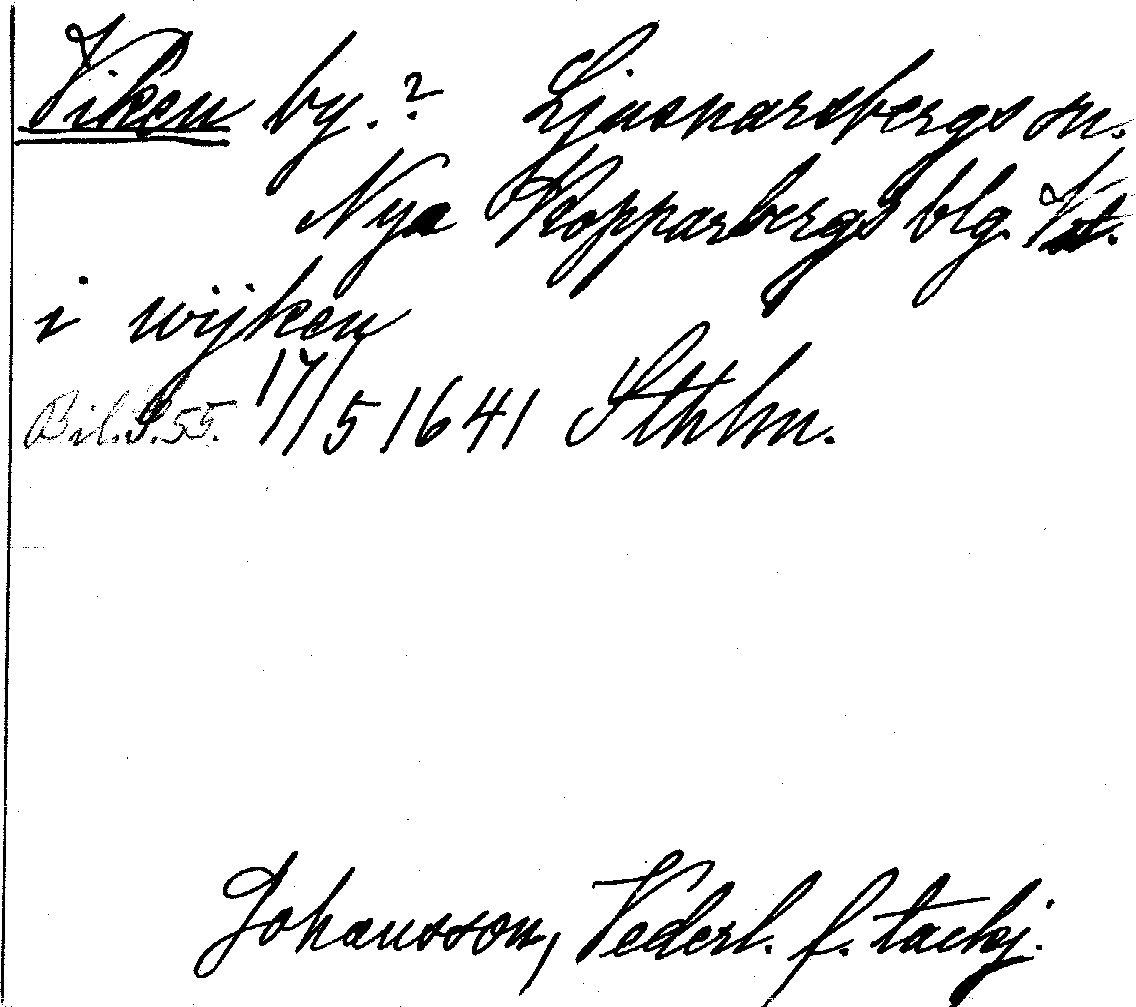 Viken by.? Ljusnarsbergs sn.
Nya Kopparbergs blg. Vstm.
i wijken
Bil. S. 55. 17/5 1641 Sthlm.
Johansson, Vederl. f. tackj.